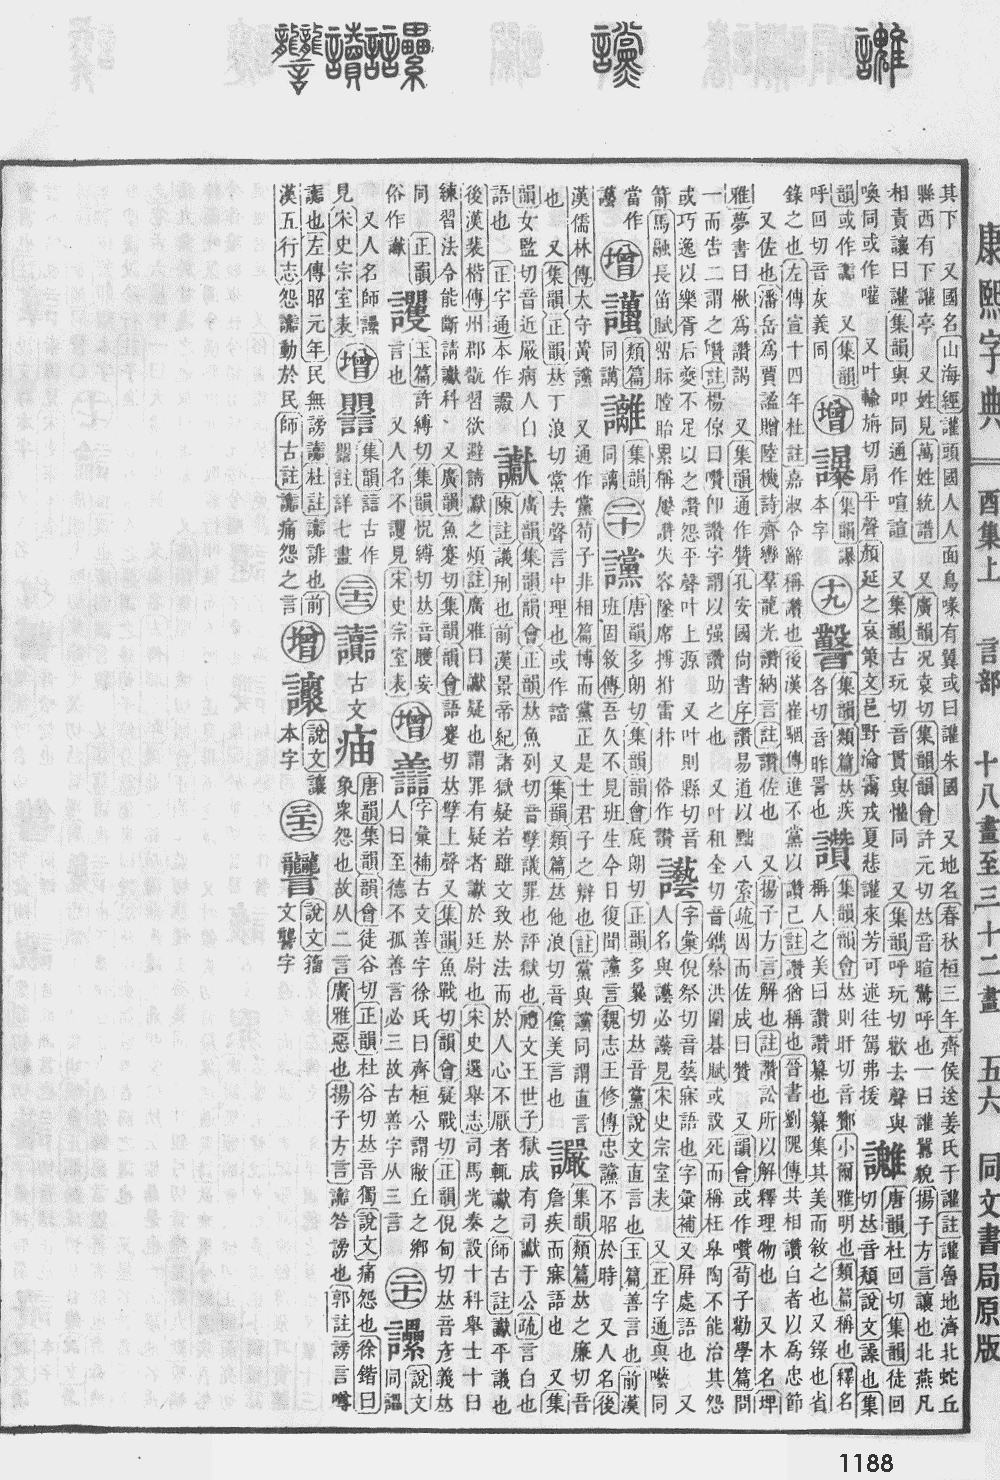 康熙字典 酉集上 言部 十八畫至三十二畫 五六 同文書局原版
其下 又國名山海經讙頭國人人面鳥喙有翼或曰讙朱國 又地名春秋桓三年齊侯送姜氏于讙註讙魯地濟北蛇丘
縣西有下讙亭 又姓見萬姓統譜 又廣韻況袁切集韻韻會許元切𠀤音暄驚呼也一曰讙嚚貌揚子方言讓也北燕凡
相責讓曰讙集韻與吅同通作喧諠 又集韻古玩切音貫與悹同 又集韻呼玩切歡去聲與
喚同或作嚾 又叶輸旃切扇平聲顏延之哀策文邑野淪藹戎夏悲讙來芳可述往駕弗援
讙
唐韻杜回切集韻徒回
切𠀤音頹說文譟也集
韻或作 又集韻
呼回切音灰義同
增
𧭤
集韻謈
本字
十九
集韻類篇𠀤疾
各切音昨詈也
讚
集韻韻會𠀤則旰切音酇小爾雅明也類篇稱也釋名
稱人之美曰讚讚纂也纂集其美而敘之也又錄也省
錄之也左傳宣十四年杜註嘉淑令辭稱讚也後漢崔駰傳進不黨以讚己註讚猶稱也晉書劉隗傳共相讚白者以為忠節
又佐也潘岳為賈謐贈陸機詩齊轡羣龍光讚納言註讚佐也 又揚子方言解也註讚訟所以解釋理物也 又木名埤
雅夢書曰楸為讚謁 又集韻通作贊孔安國尚書序讚易道以黜八索疏因而佐成曰贊 又韻會或作囋荀子勸學篇問
一而告二謂之囋註楊倞曰囋卽讚字謂以强讚助之也 又叶租全切音鐫蔡洪圍碁賦或設死而稱枉臯陶不能治其怨
或巧逸以樂胥后夔不足以之讚怨平聲叶上源 又叶則縣切音
箭馬融長笛賦
俗作讃
讛
字彙倪祭切音藝寐語也字彙補又屛處語也 又
人名與讛必讛見宋史宗室表 又正字通與囈同
當作讛
增
類篇
同講
集韻
同謧
二十
讜
唐韻多朗切集韻韻會底朗切正韻多曩切𠀤音黨說文直言也玉篇善言也前漢
班固敘傳吾久不見班生今日復聞讜言魏志王修傳忠讜不昭於時 又人名後
漢儒林傳太守黃讜 又通作黨荀子非相篇博而黨正是士君子之辯也註黨與讜同謂直言
也 又集韻正韻𠀤丁浪切當去聲言中理也或作譡 又集韻類篇𠀤他浪切音儻美言也
讝
集韻類篇𠀤之廉切音
詹疾而寐語也 又集
韻女監切音近嚴病人自
語也 正字通本作
讞
廣韻集韻韻會正韻𠀤魚列切音孼議罪也評獄也禮文王世子獄成有司讞于公疏言白也
陳註議刑也前漢景帝紀諸獄疑若雖文致於法而於人心不厭者輒讞之師古註讞平議也
後漢裴楷傳州郡翫習欲避請讞之煩註廣雅曰讞疑也謂罪有疑者讞於廷尉也宋史選舉志司馬光奏設十科舉士十曰
練習法令能斷請讞科 又廣韻魚蹇切集韻韻會語蹇切𠀤孼上聲又集韻魚戰切韻會疑戰切正韻倪甸切𠀤音彥義𠀤
同 正韻
俗作
玉篇許縛切集韻怳縛切𠀤音矍妄
言也 又人名不戄見宋史宗室表
增
譱
字彙補古文善字徐氏曰齊桓公謂敝丘之鄉
人曰至德不孤善言必三故古善字从三言
二十一
說文
同讄
又人名師
見宋史宗室表
增
集韻
嚚註詳七畫
二十二
讟
古文
唐韻集韻韻會徒谷切正韻杜谷切𠀤音獨說文痛怨也徐鍇曰
象衆怨也故从二言廣雅惡也揚子方言讟咎謗也郭註謗言噂
讟也左傳昭元年民無謗讟杜註讟誹也前
漢五行志怨讟動於民師古註讟痛怨之言
增
說文讓
本字
三十二
說文籀
文讋字
1188